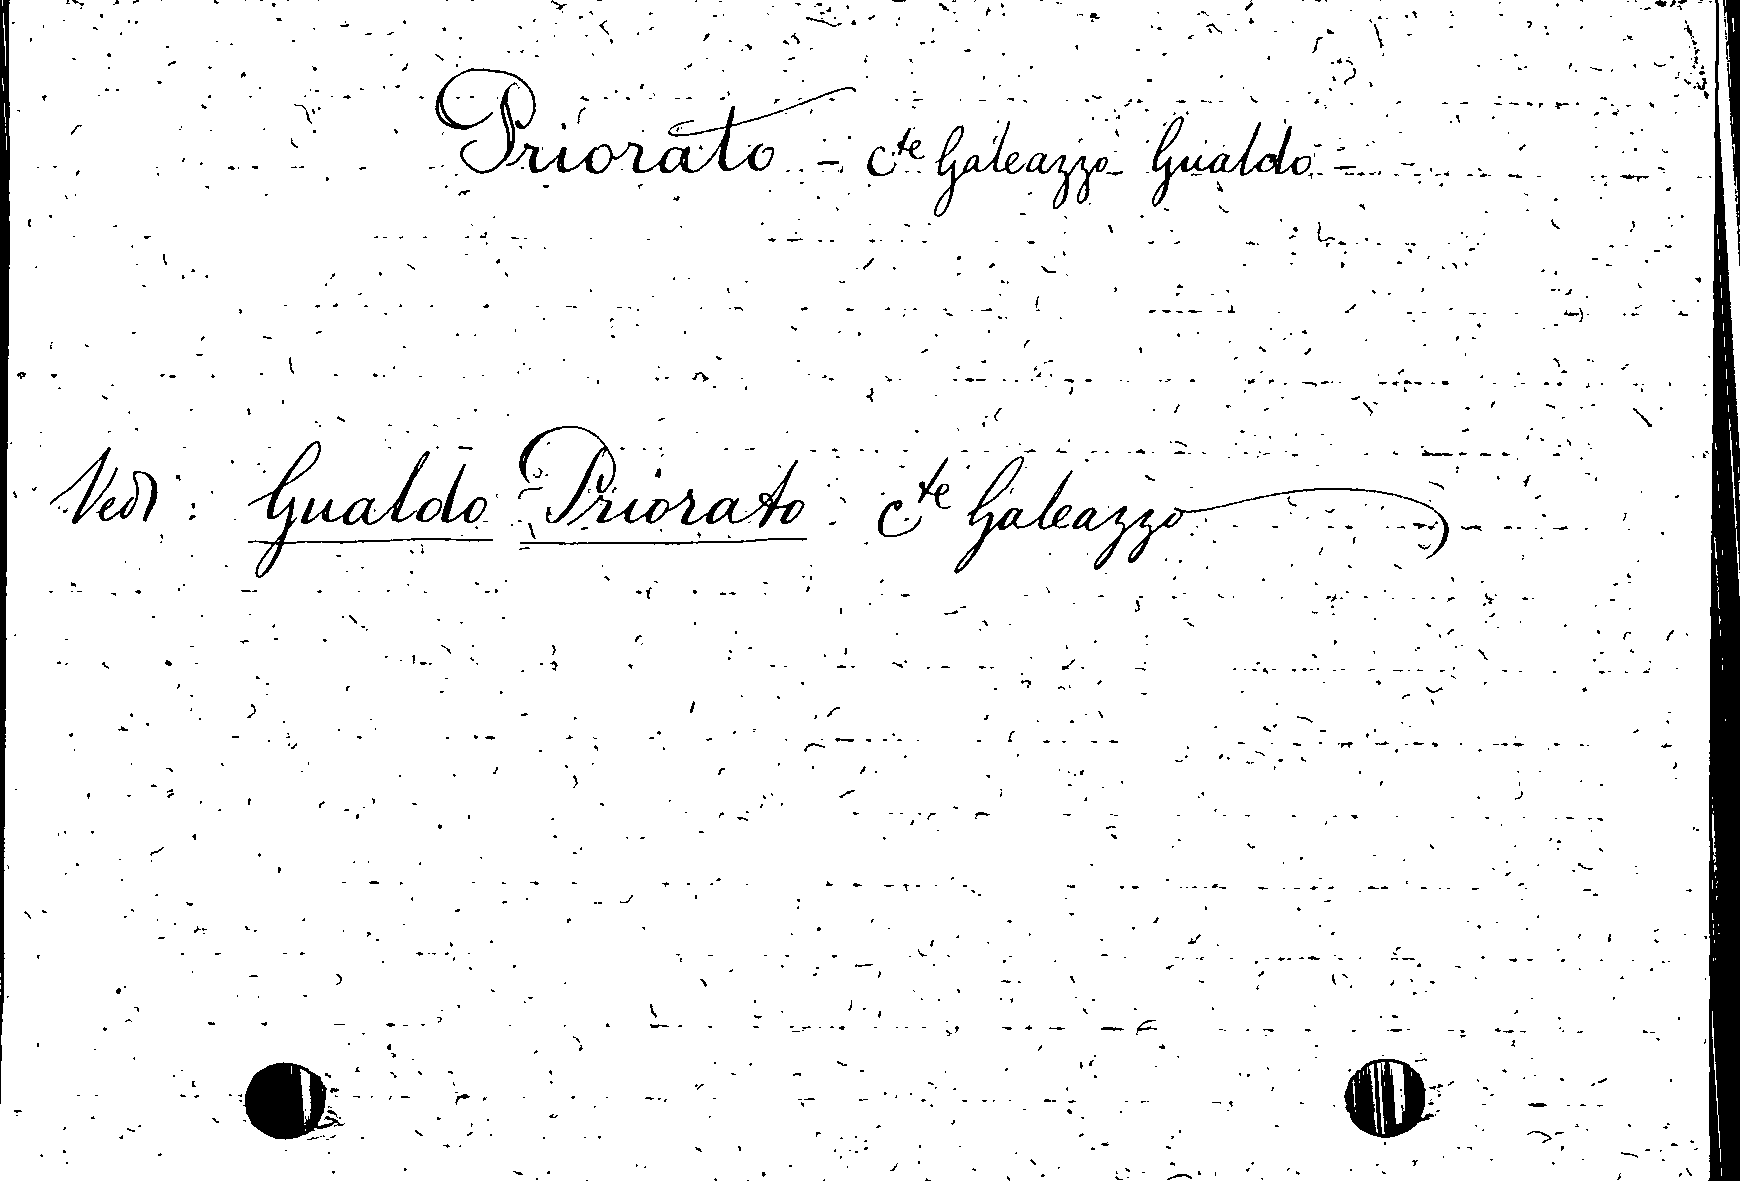 Priorato - Cte Galeazzo Gualdo -
Vedi : Gualdo Priorato : Cte Galeazzo